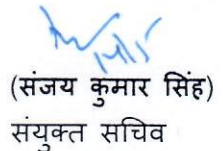 (संजय कुमार सिंह)
संयुक्त सचिव